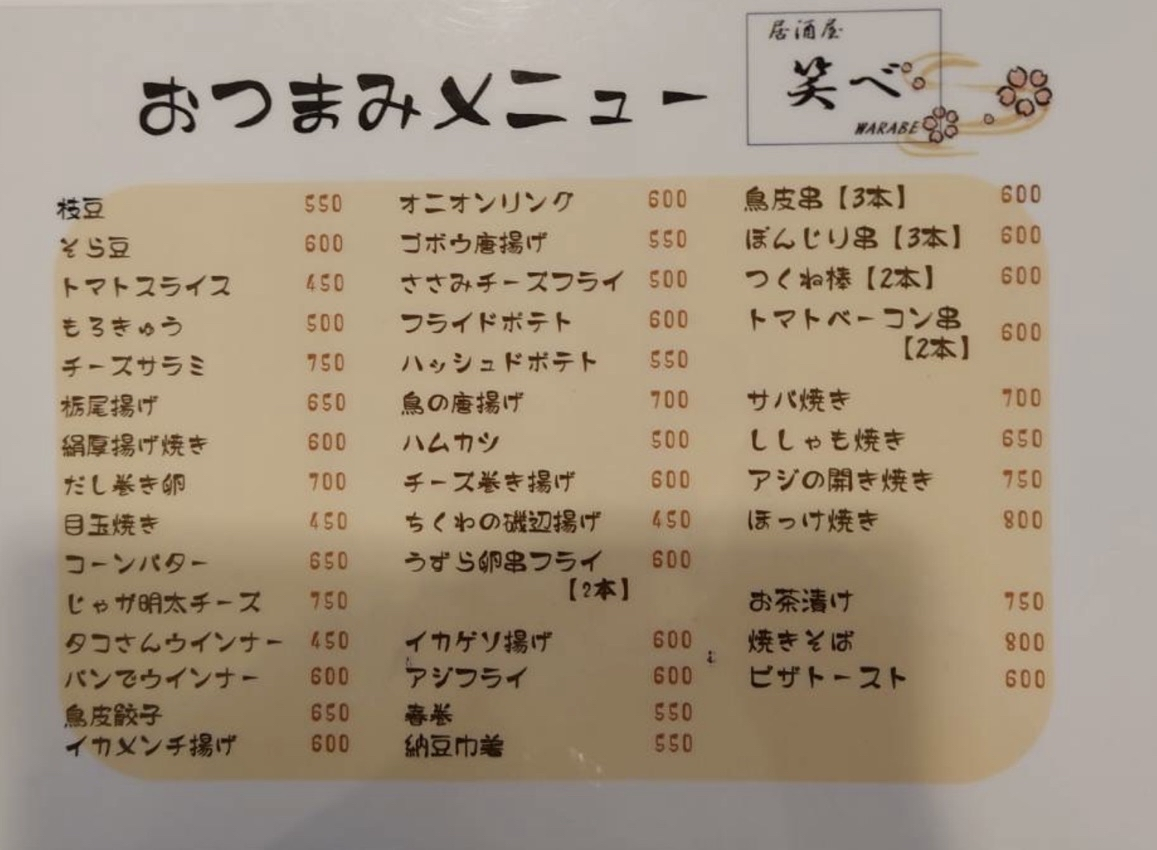 おつまみメニュー
居酒屋
笑べ
WARABE
枝豆 550
そら豆 600
トマトスライス 450
もろきゅう 500
チーズサラミ 750
栃尾揚げ 650
絹厚揚げ焼き 600
だし巻き卵 700
目玉焼き 450
コーンバター 650
じゃが明太チーズ 750
タコさんウインナー 450
パンでウインナー 600
鳥皮餃子 650
イカメンチ揚げ 600
オニオンリング 600
ゴボウ唐揚げ 550
ささみチーズフライ 500
フライドポテト 600
ハッシュドポテト 550
鳥の唐揚げ 700
ハムカツ 500
チーズ巻き揚げ 600
ちくわの磯辺揚げ 450
うずら卵串フライ 600
【2本】
イカゲソ揚げ 600
アジフライ 600
春巻 550
納豆巾着 550
鳥皮串【3本】 600
ぼんじり串【3本】 600
つくね棒【2本】 600
トマトベーコン串 600
【2本】
サバ焼き 700
ししゃも焼き 650
アジの開き焼き 750
ほっけ焼き 800
お茶漬け 750
焼きそば 800
ピザトースト 600